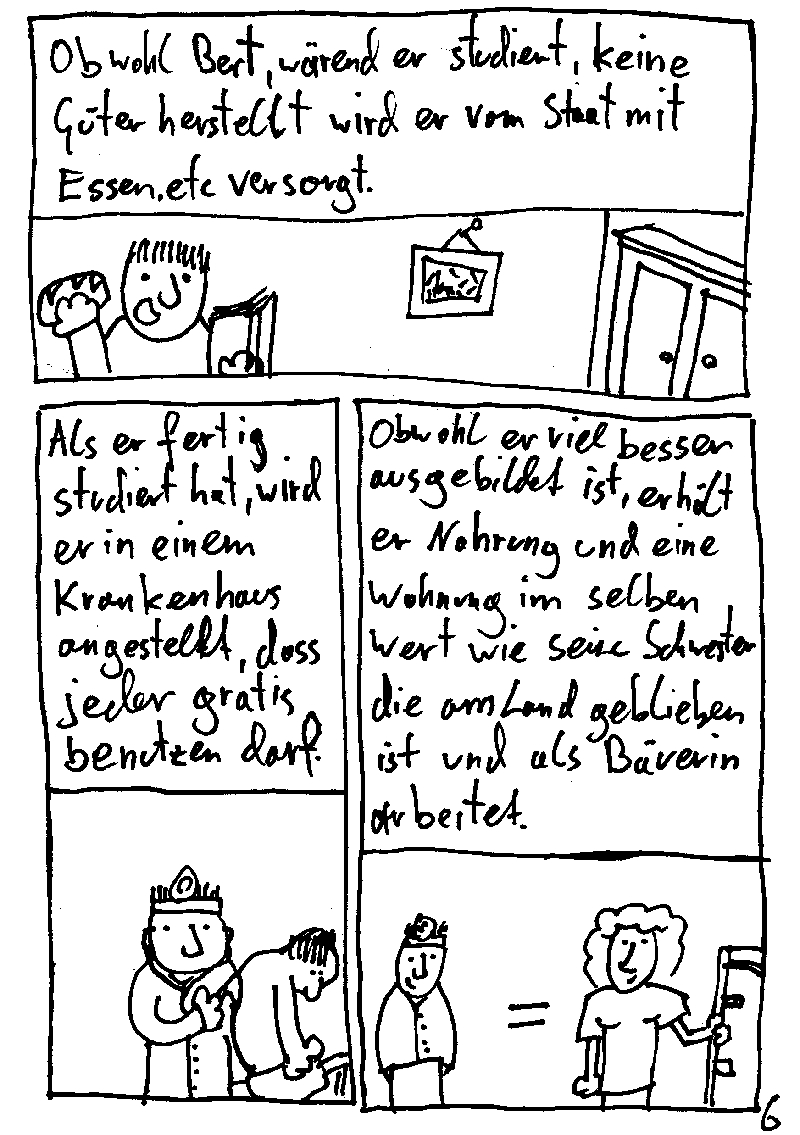 Obwohl Bert, wärend er studient, keine
Güter herstellt wird er vom Staat mit
Essen, etc versorgt.
Als er fertig
studiert hat, wird
er in einem
Krankenhaus
angestellt, dass
jeder gratis
benutzen darf.
Obwohl er viel besser
ausgebildet ist, erhält
er Nahrung und eine
Wohnung im selben
Wert wie seine Schwester
die am Land geblieben
ist und als Bäuerin
arbeitet.
6